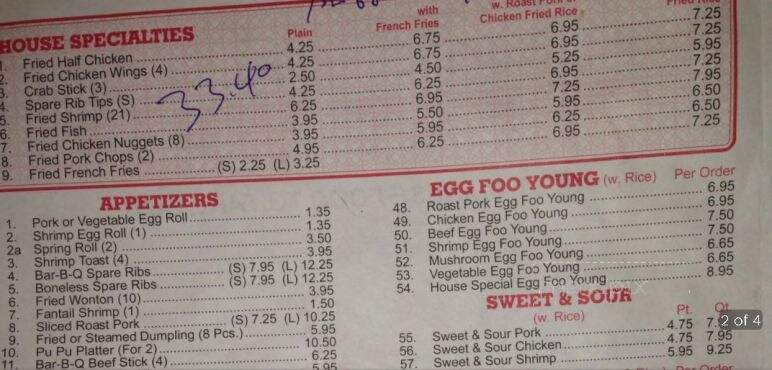 with
w. Roast Pork or
Fried Rice
HOUSE SPECIALTIES Plain French Fries Chicken Fried Rice
1. Fried Half Chicken 4.25 6.75 6.95 7.25
2. Fried Chicken Wings (4) 4.25 6.75 6.95 7.25
3. Crab Stick (3) 2.50 4.50 5.25 5.95
4. Spare Rib Tips (S) 4.25 6.25 6.95 7.25
5. Fried Shrimp (21) 6.25 6.95 7.25 7.95
6. Fried Fish 3.95 5.50 5.95 6.50
7. Fried Chicken Nuggets (8) 3.95 5.95 6.25 6.50
8. Fried Pork Chops (2) 4.95 6.25 6.95 7.25
9. Fried French Fries (S) 2.25 (L) 3.25
33.40
APPETIZERS
1. Pork or Vegetable Egg Roll 1.35
2. Shrimp Egg Roll (1) 1.35
2a Spring Roll (2) 3.50
3. Shrimp Toast (4) 3.95
4. Bar-B-Q Spare Ribs (S) 7.95 (L) 12.25
5. Boneless Spare Ribs (S) 7.95 (L) 12.25
6. Fried Wonton (10) 3.95
7. Fantail Shrimp (1) 1.50
8. Sliced Roast Pork (S) 7.25 (L) 10.25
9. Fried or Steamed Dumpling (8 Pcs.) 5.95
10. Pu Pu Platter (For 2) 10.50
11. Bar-B-Q Beef Stick (4) 6.25
5.95
EGG FOO YOUNG (w. Rice) Per Order
48. Roast Pork Egg Foo Young 6.95
49. Chicken Egg Foo Young 6.95
50. Beef Egg Foo Young 7.50
51. Shrimp Egg Foo Young 7.50
52. Mushroom Egg Foo Young 6.65
53. Vegetable Egg Foo Young 6.65
54. House Special Egg Foo Young 8.95
SWEET & SOUR
(w. Rice) Pt. Qt.
55. Sweet & Sour Pork 4.75
56. Sweet & Sour Chicken 4.75 7.95
57. Sweet & Sour Shrimp 5.95 9.25
Per Order
2 of 4